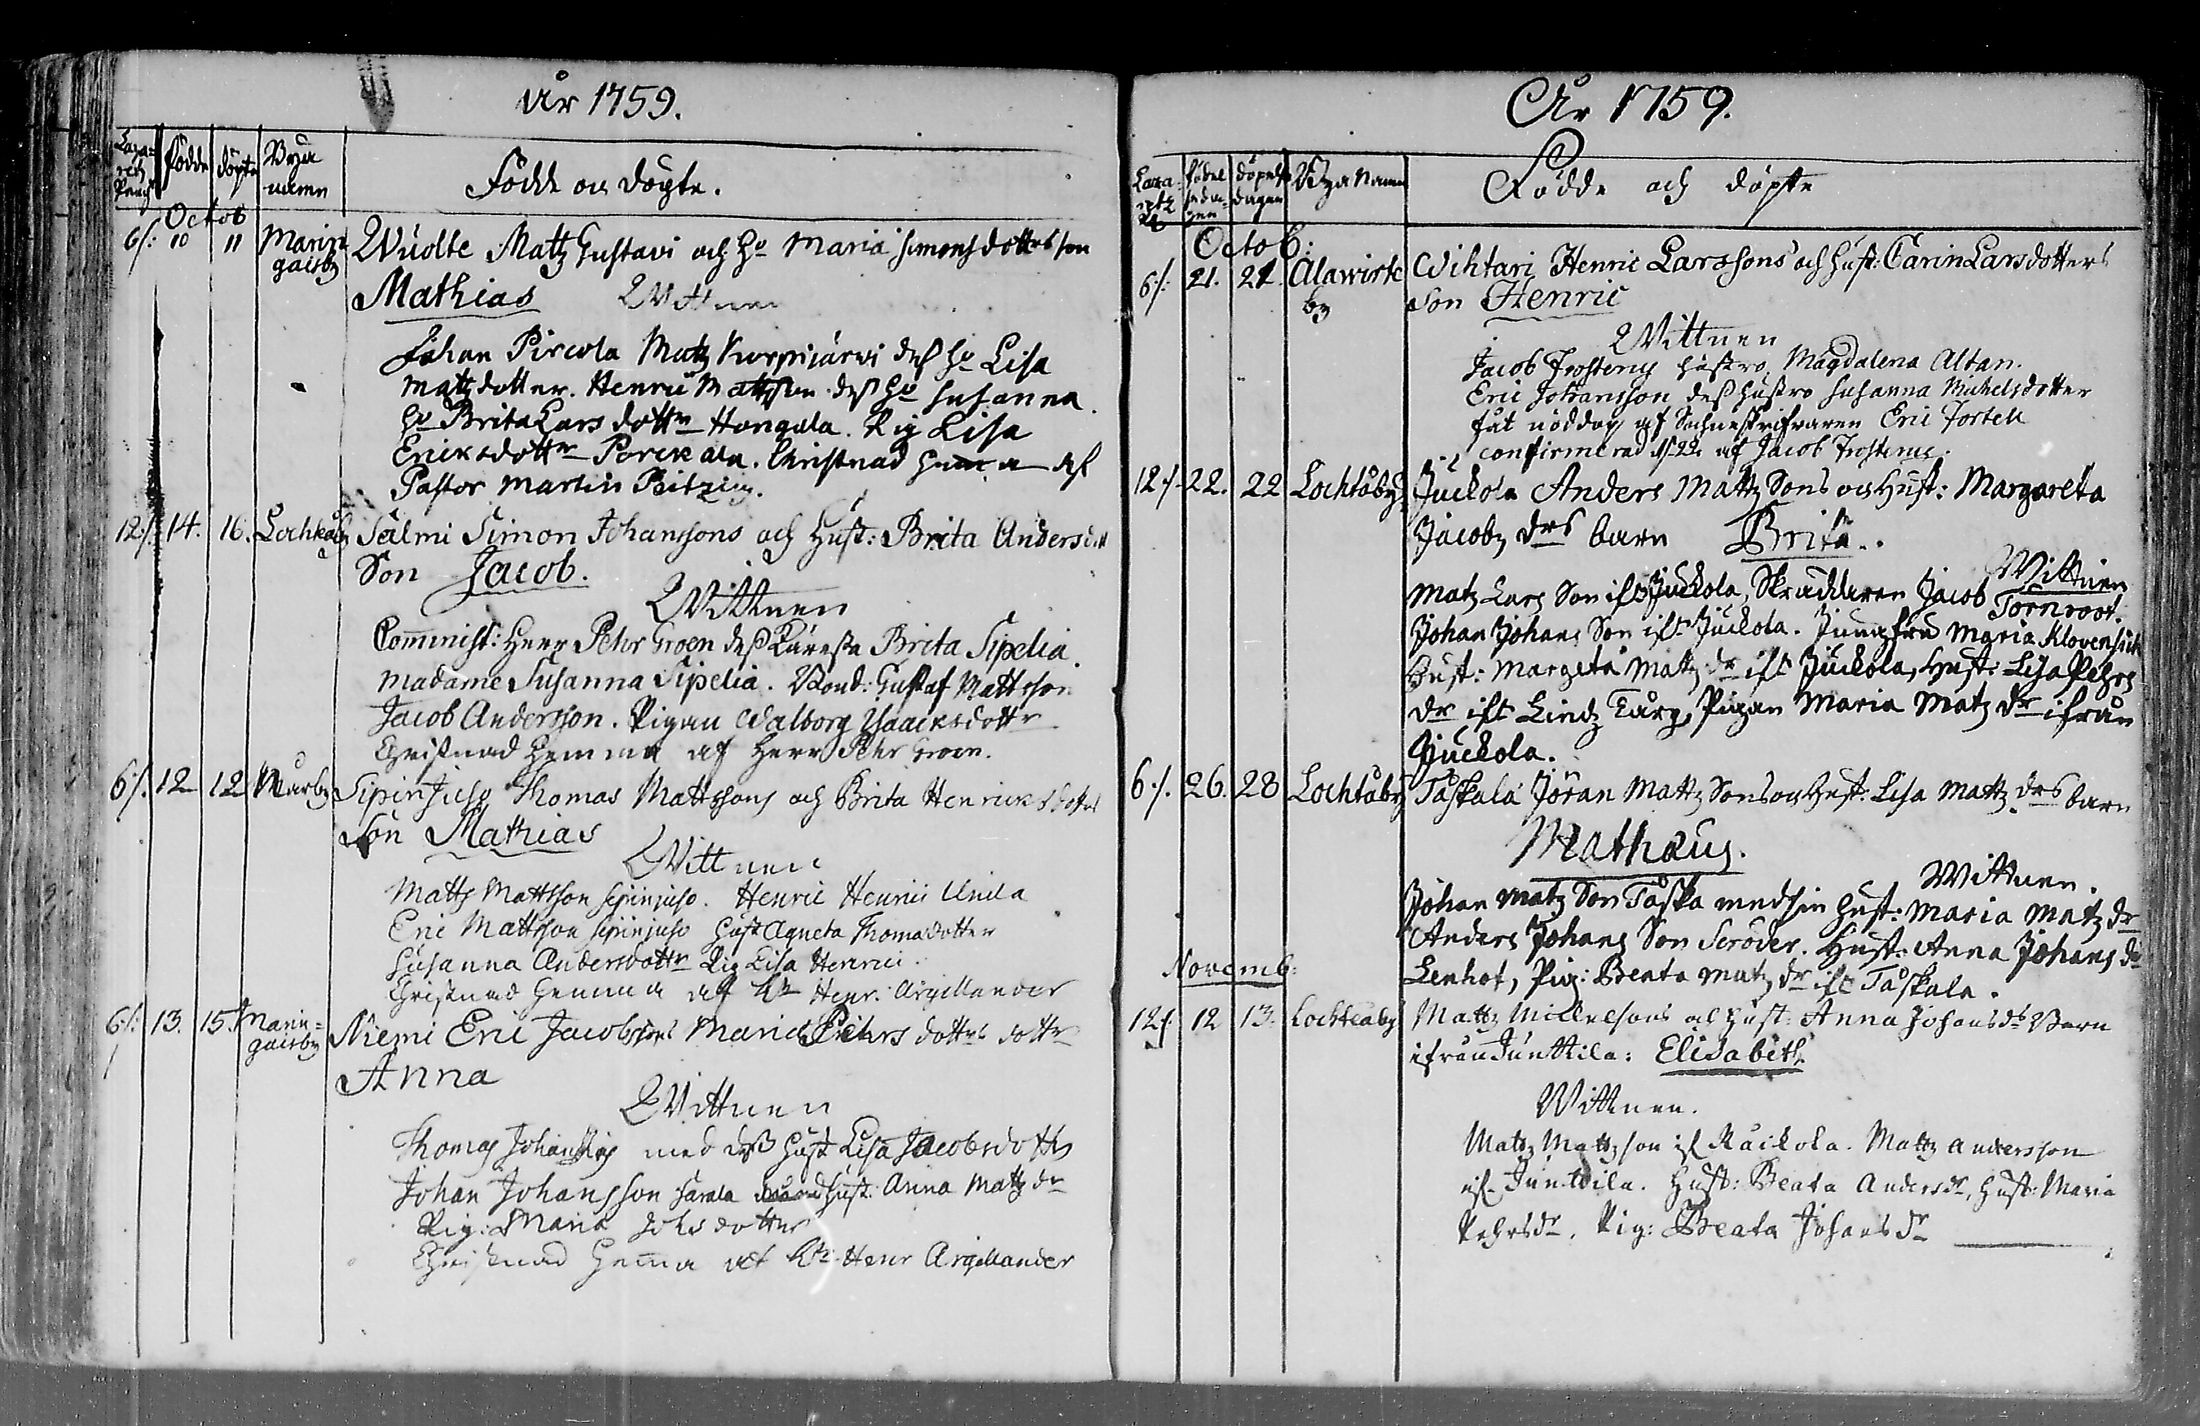 År 1759.
Laza-
retz
Peng
Födde
döpte
Bya
namn
Födde oc döpte.
Octob
6/: 10 11 Marin
gaisby
Wuolte Matz Gustavi och Ho Maria Simonsdottrs son
Mathias Wittnen
Johan Pircola Matz Korpijärvi dess Ho Lisa
Matzdotter. Henric Mattsson dess Ho Susanna
Ho Brita Lars dottr Hongala. Pig Lisa
Ericksdottr Porckala. Christnad hema af
Pastor Martin Peitzius.
12/. 14. 16. Lochtåby
Sälmi Simon Johanssons och Hust: Brita Andersdr
Son Jacob.
Wittnen
Comminist: Herr Pehr Groen dess Käresta Brita Sipelia.
Madame Susanna Sipelia. Bond: Gustaf Mattsson
Jacob Andersson. Pigan Walborg Isaacksdottr
Christnad hemma af Herr Pehr Groen.
6/. 12 12 Marby
Sipinjuso Thomas Mattssons och Brita Henricksdottrs
Son Mathias
Wittnen
Matts Mattsson Sipinjuso. Henric Henrici Unila
Eric Mattsson Sipinjuso Hust Agneta Thomasdotter
Susanna Andersdottr Pig Lisa Henrici.
Christnad hemma af Hr Henr: Argillander
6/: 13. 15. Marin=
gaisby
Niemi Eric Jacobssons Maria Pehrs dottrs dottr
Anna
Wittnen
Thomas Johansson med dess Hust Lisa Jacobsdottr
Johan Johansson Sarala Hust: Anna Matz dr
Pig: Maria Johsdotter
Christnad hema af Hr Henr Argillander
År 1759.
Laza-
retz
Födel
seda-
gen
döpelse
dagen
Bya Namn
Födde och döpte
Octob:
6/: 21. 21. Alawirte
by
Wihtari Henric Larssons och Hust: Carin Larsdotters
Son Henric
Wittnen
Jacob Trostens hustro, Magdalena Altan.
Eric Johansson dess hustro Susanna Michelsdotter
fåt nöddop af Sochneskrifvaren Eric Tortell
confirmerad d. 22 af Jacob Trostenius.
12/. 22. 22 Lochtåby
Juckola Anders Matz Sons och Hust: Margareta
Jacobs drs barn Brita.
Wittnen
Matz Lars Son ifr Juckola, Skräddaren Jacob Törnroos.
Johan Johans Son ifr Juckola. Jungfru Maria Klovensich
Hust: Margeta Matz dr ifr Juckola, Hust: Lisa Pehrs
dr ifr Lindz Tårp, Pigan Maria Matz dr ifrån
Juckola.
6/. 26. 28 Lochtåby
Taskala Jöran Matz Sons och Hust: Lisa Matz drs barn
Mathæus.
Wittnen.
Johan Matz Son Taska med sin Hust: Maria Matz dr
Anders Johans Son Scröder. Hust: Anna Johans dr
Lenhof, Pig: Beata Matz dr ifr Taskala.
Novemb:
12/. 12 13. Lochteaby
Matz Mickelsons och Hust: Anna Johans drs Barn
ifrån Junttila: Elisabeth
Wittnen.
Matz Mattzson if Räickola. Matz Andersson
if. Junttila. Hust: Beata Andersdr, Hust: Maria
Pehrsdr. Pig: Beata Johans dr